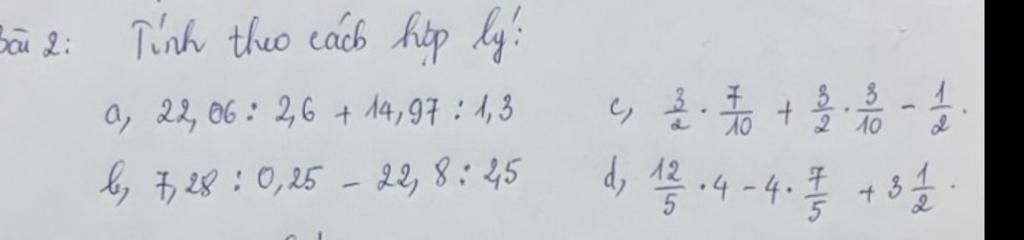 Bài 2: Tính theo cách hợp lý:
a, 22,06 : 2,6 + 14,97 : 1,3
c, 3/2 . 7/10 + 3/2 . 3/10 - 1/2 .
b, 7,28 : 0,25 - 22,8 : 2,5
d, 12/5 . 4 - 4 . 7/5 + 3 1/2 .